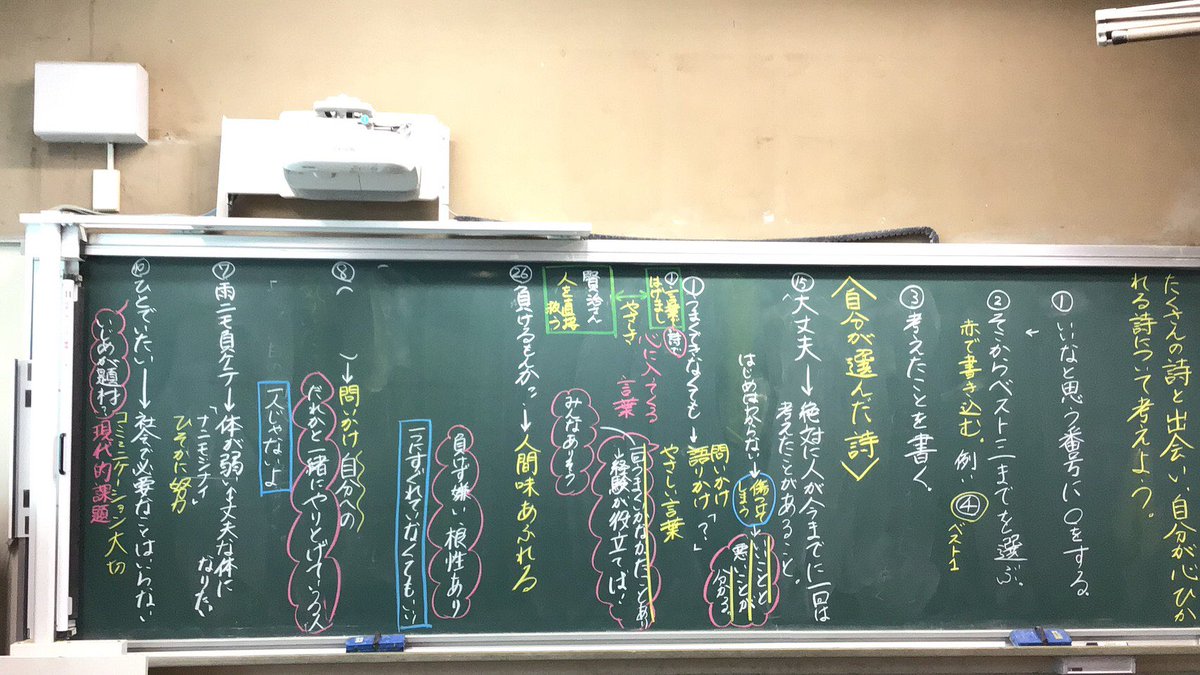 たくさんの詩と出会い、自分が心ひか
れる詩について考えよう。
① いいなと思う番号に○をする。
② そこからベスト二までを選ぶ。
赤で書き込む。例い ④ ベスト1
③ 考えたことを書く。
〈自分が選んだ詩〉
⑮ 大丈夫→絶対に人が今までに一回は
考えたことがあること。
はじめはわからない→傷つけてしまう→いいことと
悪いことが
分かる
① うまくできなくても→問いかけ「?」
語りかけ
やさしい言葉
一回うまくいかなかったことあり
→経験が役立てば!
みなありそう
心に入ってくる
言葉
①言葉で
はげまし
詩が
やさしさ
賢治さん
人を直接
救う
㉖ 負けるもんか→人間味あふれる
負けず嫌い、根性あり
一つにすぐれていなくてもいい
⑧( )→問いかけ 自分への
だれかと一緒にやりとげようという人
一人じゃないよ
⑦ 雨ニモ負ケテ→体が弱い→丈夫な体に
なりたい
「ナニモシナイ」
ひそかに努力
⑩ ひとでいたい→社会で必要なことはいらない
いじめが題材?
現代的課題
「コミュニケーション大切